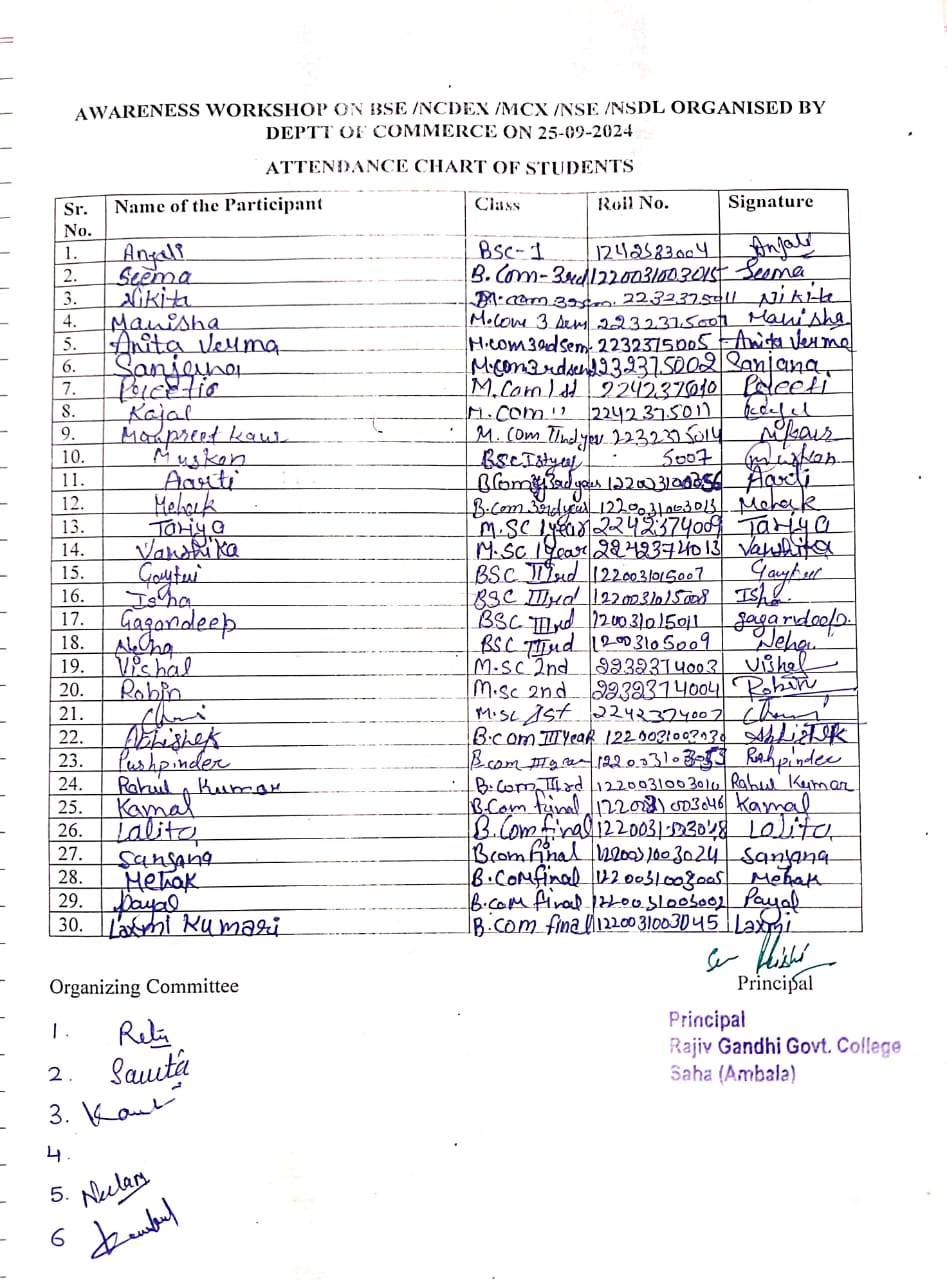 AWARENESS WORKSHOP ON BSE /NCDEX /MCX /NSE /NSDL ORGANISED BY
DEPTT OF COMMERCE ON 25-09-2024
ATTENDANCE CHART OF STUDENTS
Sr. No. Name of the Participant Class Roll No. Signature
1. Anjali BSC-1 1242583004 Anjali
2. Seema B.Com-3rd 1220031003015 Seema
3. Nikita M.com 3sem. 2232375011 Nikita
4. Manisha M.Com 3 Sem 2232375007 Manisha
5. Anita Verma M.com 3rd sem. 2232375005 Anita Verma
6. Sanjana M.com 3rd sem 2232375002 Sanjana
7. M.Com 1st 2242375010
8. Kajal M.COM " 2242375011 Kajal
9. Manpreet Kaur M.Com IInd year 2232375014 M Kaur
10. Muskan BSc Ist year 5007 Muskan
11. Aarti BCom 3rd year Aarti
12. Mehak B.com 3rd year 1220031003013 Mehak
13. Tariya M.SC 1 year 2242374009 Tariya
14. Vanshika M.SC 1 Year 2242374013 Vanshika
15. BSC IIIrd 1220031015007
16. Isha BSC IIIrd 1220031015008 Isha.
17. Gagandeep BSC IIIrd 120031015011 gagandeep.
18. Neha BSC IIIrd 12003105009 Neha
19. Vishal M.SC 2nd 2232374003 Vishal
20. Robin M.Sc 2nd 2232374004 Robin
21. M.Sc 1st 2242374007
22. Abhishek B.com III Year Abhishek
23. Pushpinder B.com III Pushpinder
24. Rahul Kumar B.Com IIIrd 1220031003010 Rahul Kumar
25. Kamal B.Com final 1220031003046 Kamal
26. Lalita B.Com final Lalita
27. Sanjana Bcom final 1220031003024 Sanjana
28. Mehak B.Com final 1220031003005 Mehak
29. Payal B.com final 1220031003002 Payal
30. Laxmi Kumari B.com final 1220031003045 Laxmi
Organizing Committee Principal
Principal
Rajiv Gandhi Govt. College
Saha (Ambala)
1.
2.
3.
4.
5. Neelam
6